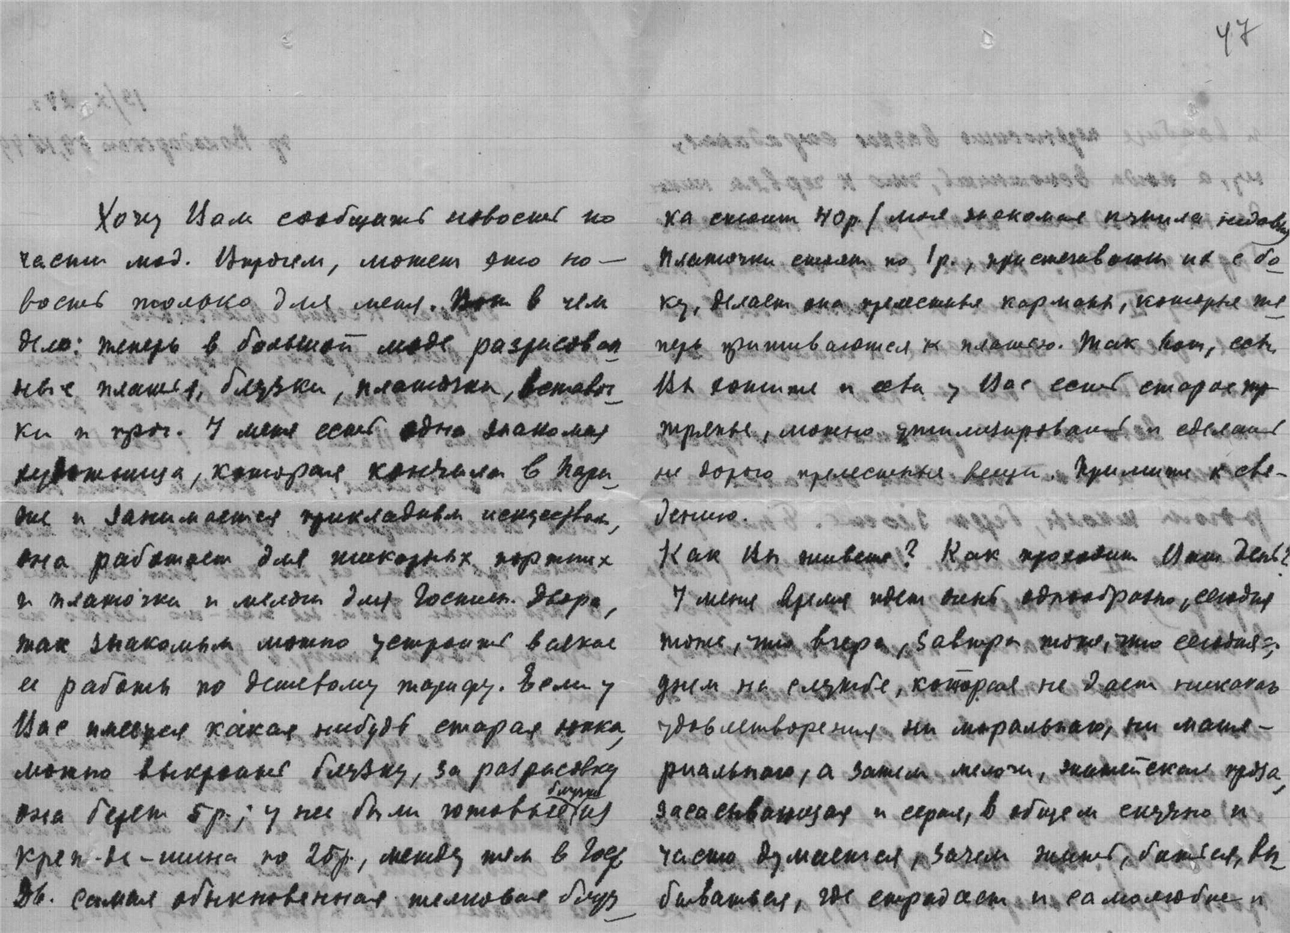 47
Хочу Вам сообщить новость по
части мод. Впрочем, может это но-
вость только для меня. Вот в чем
дело: теперь в большой моде разрисован
ные платья, блузки, платочки, вставоч
ки и проч. У меня есть одна знакомая
художница, которая кончила в Пари
же и занимается прикладным искусством,
она работает для шикарных портних
и платочки и мелочи для Гостин. Двора,
так знакомым можно устроить всякие
ее работы по дешевому тарифу. Если у
Вас имеется какая нибудь старая юпка,
можно выкроить блузку, за разрисовку
она берет 5 р.; у нее были готовые блузки из
креп-де-шина по 26 р., между тем в Гост
Дв. самая обыкновенная шелковая блуз
ка стоит 40 р. (моя знакомая купила недавно)
Платочки стоят по 1 р., пристегивают их с бо
ку, делает она прелестные карманы, которые те
перь пришиваются к платью. Так вот, если
Вы хотите и если у Вас есть старое
тряпье, можно утилизировать и сделать
не дорого прелестные вещи. Примите к све-
дению.
Как Вы живете? Как проходит Ваш день?
У меня время идет очень однообразно, сегодня
тоже, что вчера, завтра тоже, что сегодня
днем на службе, которая не дает никакого
удовлетворения ни морального, ни мате-
риального, а затем мелочи, житейская проза,
засасывающая и серая, в общем скучно и
часто думается, зачем жить, биться, вы
биваться, где страдает и самолюбие и